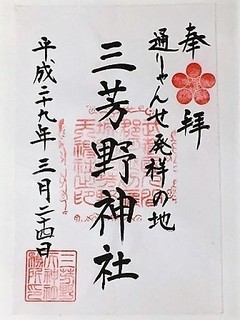 奉拝
通りゃんせ発祥の地
三芳野神社
平成二十九年三月二十四日